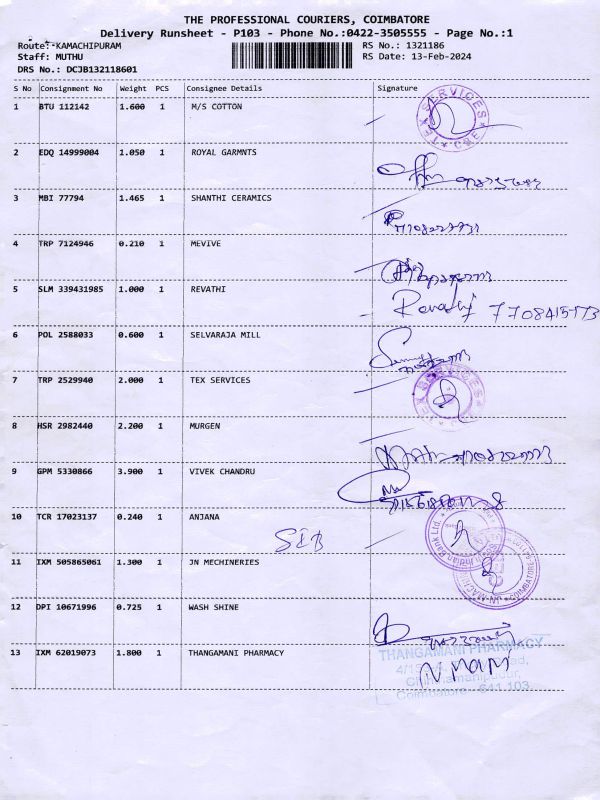 THE PROFESSIONAL COURIERS, COIMBATORE
Delivery Runsheet - P103 - Phone No.:0422-3505555 - Page No.:1
Route: KAMACHIPURAM RS No.: 1321186
Staff: MUTHU RS Date: 13-Feb-2024
DRS No.: DCJB132118601
S No Consignment No Weight PCS Consignee Details Signature
1 BTU 112142 1.600 1 M/S COTTON
TEX SERVICES CBE
2 EDQ 14999004 1.050 1 ROYAL GARMNTS
3 MBI 77794 1.465 1 SHANTHI CERAMICS
4 TRP 7124946 0.210 1 MEVIVE
5 SLM 339431985 1.000 1 REVATHI
Revathy 7708415173
6 POL 2588033 0.600 1 SELVARAJA MILL
7 TRP 2529940 2.000 1 TEX SERVICES
TEX SERVICES
8 HSR 2982440 2.200 1 MURGEN
9 GPM 5330866 3.900 1 VIVEK CHANDRU
10 TCR 17023137 0.240 1 ANJANA
SIB
11 IXM 505865061 1.300 1 JN MECHINERIES
12 DPI 10671996 0.725 1 WASH SHINE
13 IXM 62019073 1.800 1 THANGAMANI PHARMACY
THANGAMANI PHARMACY
N. Mani
Coimbatore - 641 103